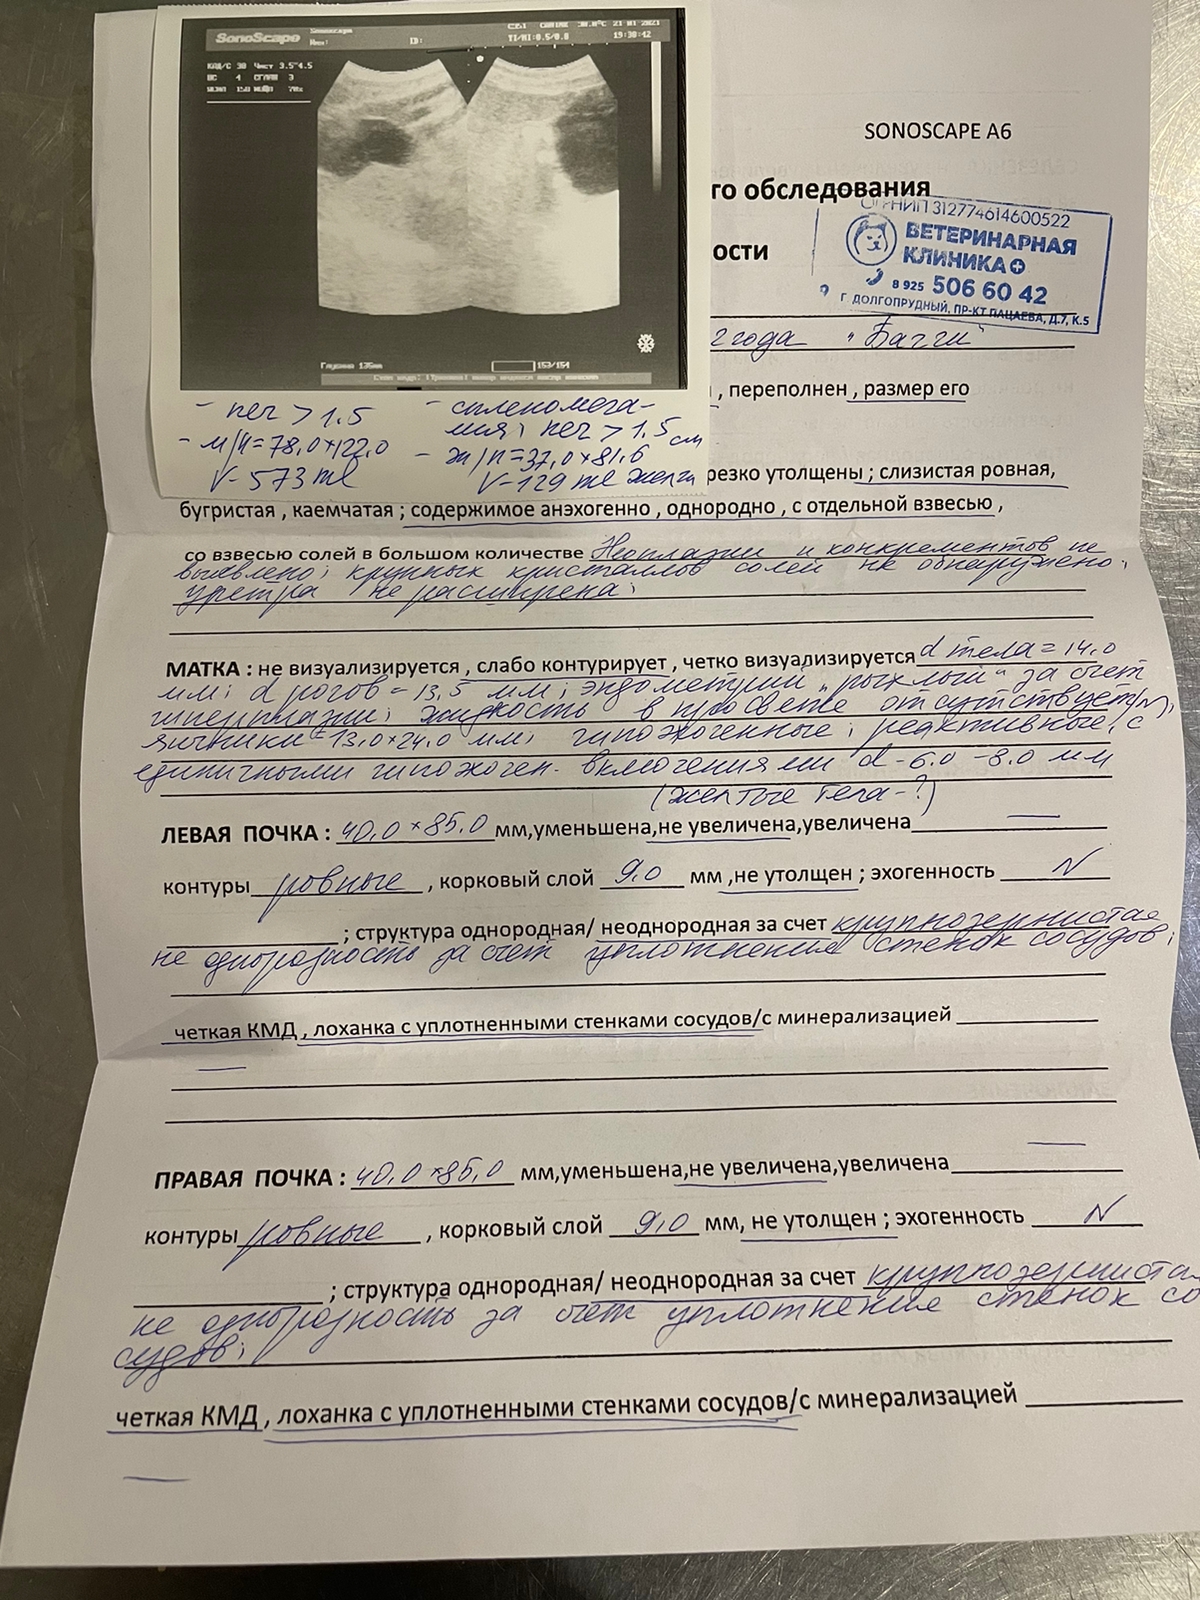 SonoScape
Sonoscape
21 01 2021
Имя:
ID:
TI/MI:0.5/0.8
19:38:42
КАД/С 38 Част 3.5~4.5
ВС 4 СГЛАЖ 3
Глубина 135мм
153/154
- печ > 1.5
- м/п=78,0*122,0
V- 573 ml
- спленомега-
лия; печ > 1.5 см
- ж/п=37,0*81,6
V-129 ml желчи
SONOSCAPE A6
го обследования
ости
ОГРНИП 312774614600522
ВЕТЕРИНАРНАЯ
КЛИНИКА
8 925 506 60 42
Г. ДОЛГОПРУДНЫЙ, ПР-КТ ПАЦАЕВА, Д.7, К.5
2 года "Багги"
, переполнен , размер его
резко утолщены ; слизистая ровная,
бугристая , каемчатая ; содержимое анэхогенно , однородно , с отдельной взвесью ,
со взвесью солей в большом количестве Неоплазии и конкрементов не
выявлено; крупных кристаллов солей не обнаружено;
уретра не расширена;
МАТКА : не визуализируется , слабо контурирует , четко визуализируется d тела = 14,0
мм; d рогов = 13,5 мм; эндометрий „рыхлый" за счет
гиперплазии; жидкость в просвете отсутствует(N);
яичники = 13,0*24,0 мм; гипоэхогенные; реактивные, с
единичными гипоэхоген. включениями d - 6.0 - 8.0 мм
(желтые тела - ?)
ЛЕВАЯ ПОЧКА : 40,0*85,0 мм,уменьшена,не увеличена,увеличена
контуры ровные , корковый слой 9,0 мм ,не утолщен ; эхогенность N
; структура однородная/ неоднородная за счет крупнозернистая
не однородность за счет уплотнения стенок сосудов;
четкая КМД , лоханка с уплотненными стенками сосудов/с минерализацией
ПРАВАЯ ПОЧКА : 40,0*85,0 мм,уменьшена,не увеличена,увеличена
контуры ровные , корковый слой 9,0 мм, не утолщен ; эхогенность N
; структура однородная/ неоднородная за счет крупнозерниста
не однородность за счет уплотнения стенок со
судов;
четкая КМД , лоханка с уплотненными стенками сосудов/с минерализацией